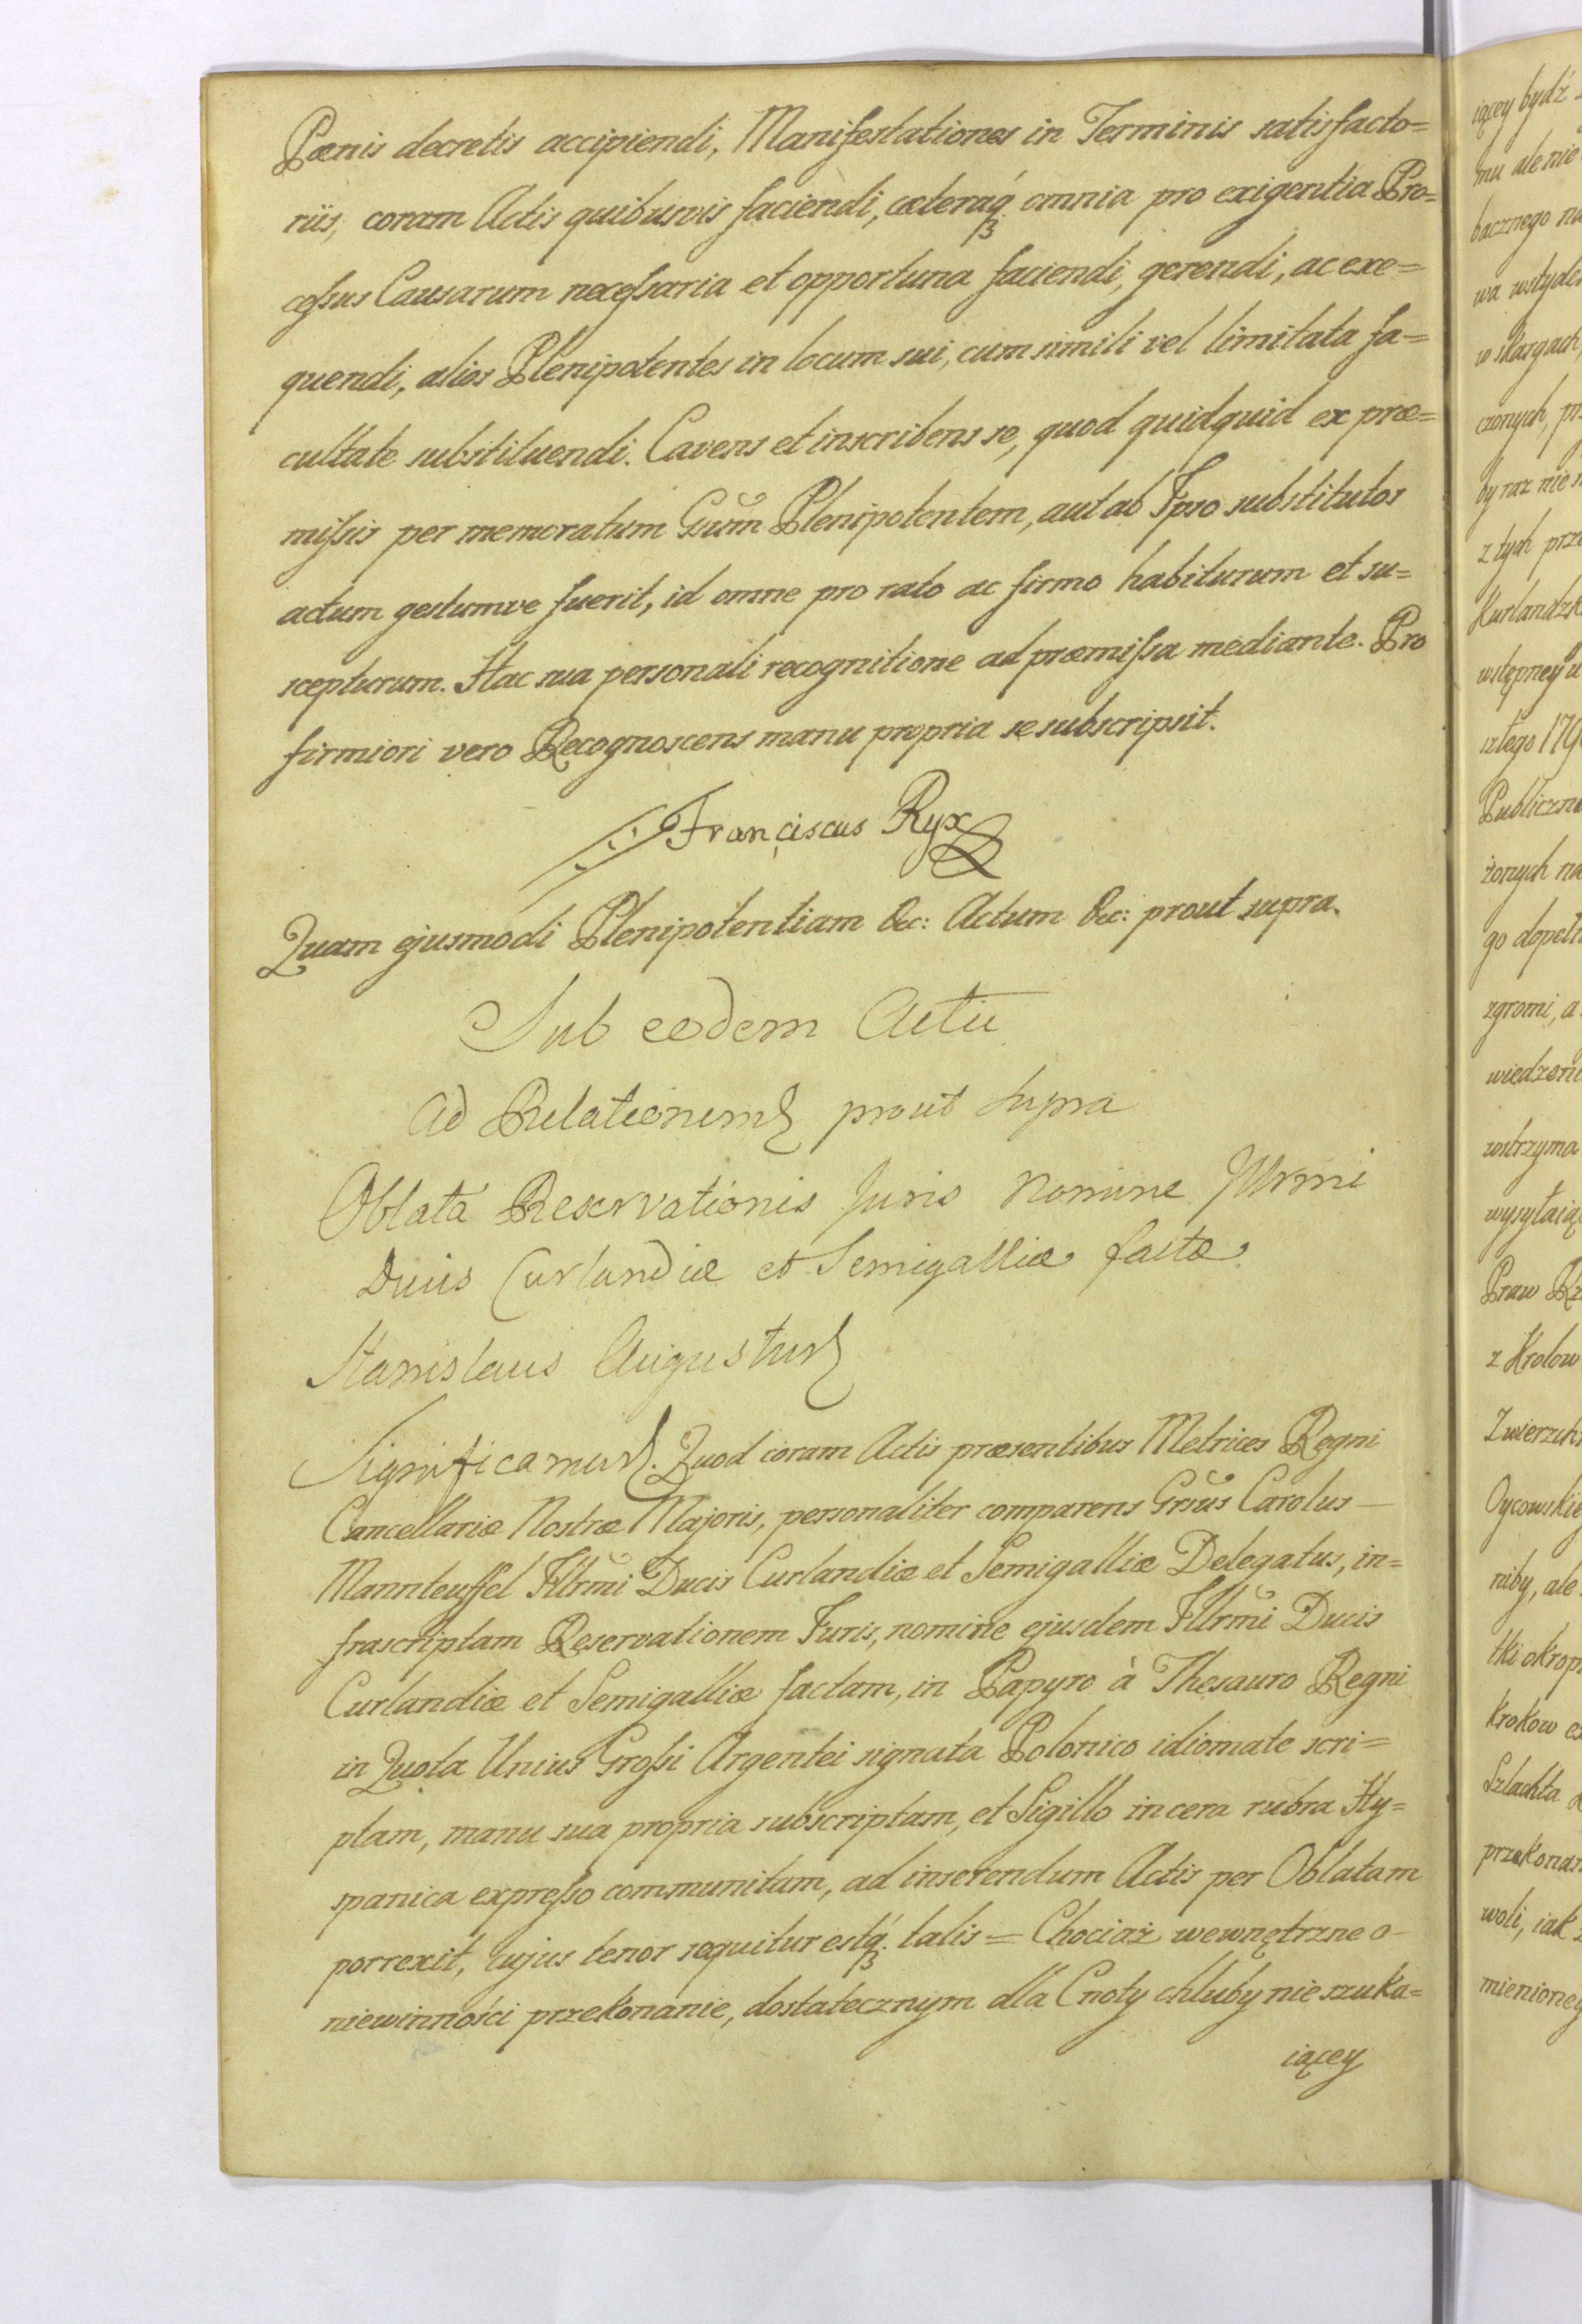 Pœnis decretis accipiendi, Manifestationes in Terminis satisfacto=
riis, coram Actis quibusvis faciendi, cœteraq́ꝫ omnia pro exigentia Pro=
ceſsus Causarum neceſsaria et opportuna faciendi, gerendi, ac exe=
quendi, alios Plenipotentes in locum sui, cum simili vel limitata fa=
cultate substituendi. Cavens et inscribens se, quod quidquid ex præ=
miſsis per memoratum Gsum Plenipotentem, aut ab Ipso substitutos
actum gestumve fuerit, id omne pro rato ac firmo habiturum et su=
scepturum. Hac sua personali recognitione ad præmiſsa mediante. Pro
firmiori vero Recognoscens manu propria se subscripsit.
Franciscus Ryx
Quam ejusmodi Plenipotentiam &c: Actum &c: prout supra.
Sub eodem Actu
Ad Relationem prout Supra
Oblata Reservationis Juris Nomine Jllrmi
Ducis Curlandiæ et Semigalliæ factæ
Stanislaus Augustus
Significamus. Quod coram Actis præsentibus Metrices Regni
Cancellariæ Nostræ Majoris, personaliter comparens Grsus Carolus
Mannteuffel Illrmi Ducis Curlandiæ et Semigalliæ Delegatus, in=
frascriptam Reservationem Juris, nomine ejusdem Illrmi Ducis
Curlandiæ et Semigalliæ factam, in Papyro à Thesauro Regni
in Quota Unius Groſsi Argentei signata Polonico idiomate scri=
ptam, manu sua propria subscriptam, et Sigillo in cera rubra Hy=
spanica expreſso communitam, ad inserendum Actis per Oblatam
porrexit, cujus tenor sequitur estq́ꝫ talis = Chociaż wewnętrzne o
niewinności przekonanie, dostatecznym dla Cnoty chluby nie szuka=
iącey
iącey bydź
mu ale nie
bacznego na
wa wstyde
w skargach,
czonych, pr
by raz nie
z tych prze
Kurlandzk
wstępney u
szłego 179
Publiczne
żonych na
go dopełn
zgromi, a
wiedzone
wstrzyma
wysyłaiąc
Praw Rz
z Krolow
Zwierzch
Oycowskie
niby, ale
tki okrop
krokow
Szlachta
przekonan
woli, iak
mienioney